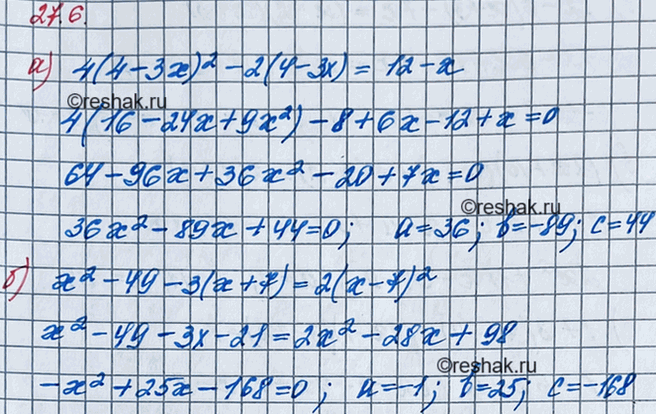 27.6.
а) 4(4-3x)² - 2(4-3x) = 12-x
©reshak.ru
4(16-24x+9x²) - 8+6x-12+x=0
64-96x+36x²-20+7x=0
©reshak.ru
36x²-89x+44=0; a=36; b=-89; c=44
б) x²-49-3(x+7)=2(x-7)²
x²-49-3x-21=2x²-28x+98
©reshak.ru
-x²+25x-168=0; a=-1; b=25; c=-168